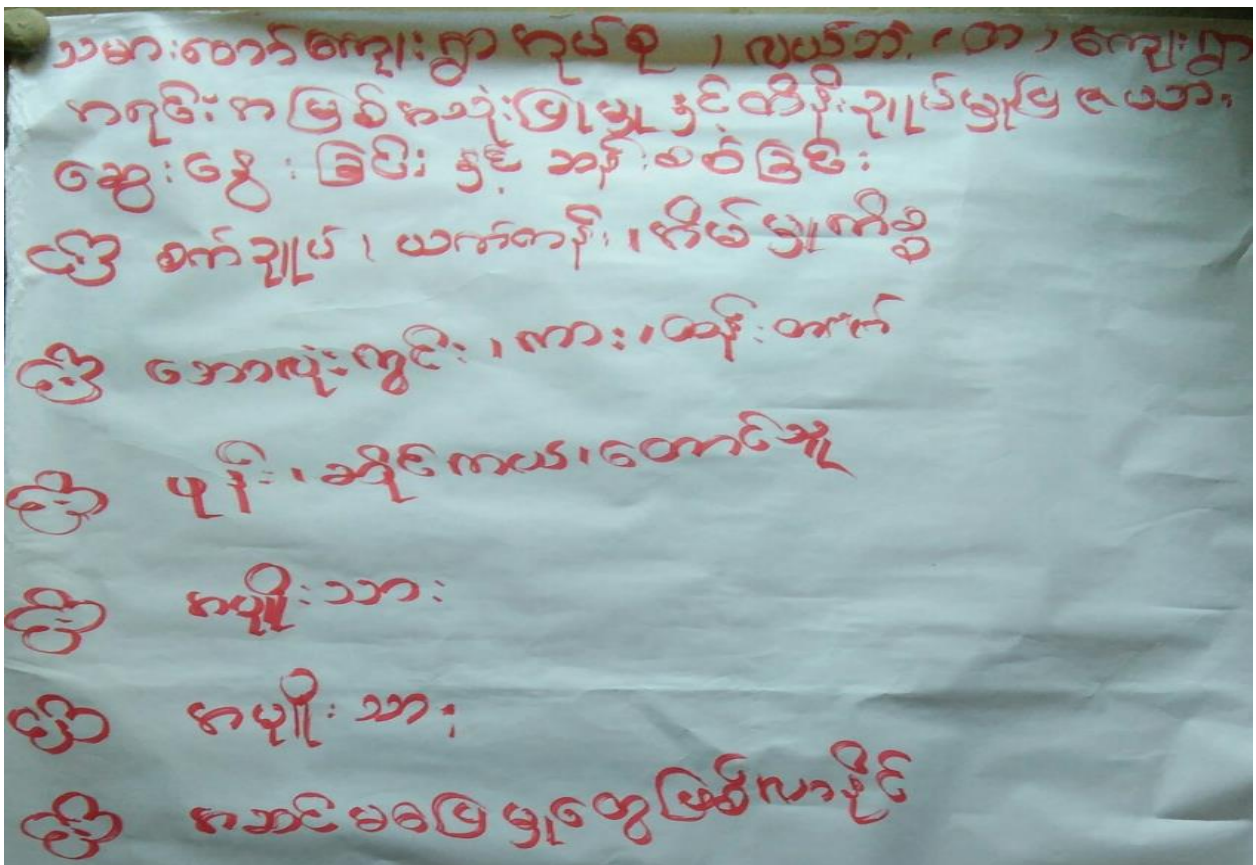 သမားတော်ကျေးရွာအုပ်စု ၊ လယ်ဘဲ (တ) ကျေးရွာ
အရင်းအမြစ်အသုံးပြုမှု နှင့်ထိန်းချုပ်မှုပြဇယား
ဆွေးနွေးခြင်း နှင့် ဆန်းစစ်ခြင်း
စက်ချုပ်၊ ယက်ကန်း၊ အိမ်မှုကိစ္စ
ဘောလုံးကွင်း၊ ကား၊ ထန်းတက်
ဖုန်း၊ ဆိုင်ကယ်၊ တောင်သူ
အမျိုးသား
အမျိုးသား
အဆင်မပြေမှုတွေဖြစ်လာနိုင်